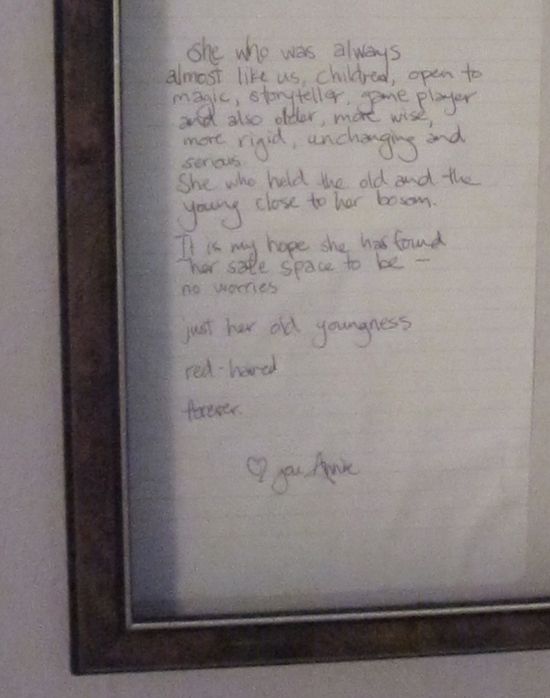 She who was always
almost like us, children, open to
magic, storyteller, game player
and also older, more wise,
more rigid, unchanging and
serious.
She who held the old and the
young close to her bosom.
It is my hope she has found
her safe space to be –
no worries
just her old youngness
red-haired
forever.
♡ you Annie